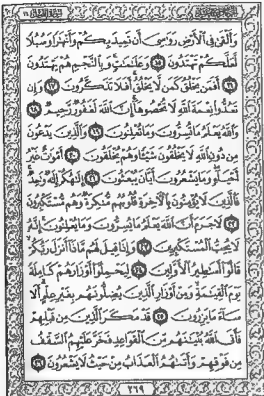 وَأَلْقَىٰ فِي ٱلْأَرْضِ رَوَٰسِيَ أَن تَمِيدَ بِكُمْ وَأَنْهَٰرًا وَسُبُلًا
لَّعَلَّكُمْ تَهْتَدُونَ ١٥ وَعَلَٰمَٰتٍ وَبِٱلنَّجْمِ هُمْ يَهْتَدُونَ
١٦ أَفَمَن يَخْلُقُ كَمَن لَّا يَخْلُقُ أَفَلَا تَذَكَّرُونَ ١٧ وَإِن
تَعُدُّوا۟ نِعْمَةَ ٱللَّهِ لَا تُحْصُوهَا إِنَّ ٱللَّهَ لَغَفُورٌ رَّحِيمٌ ١٨
وَٱللَّهُ يَعْلَمُ مَا تُسِرُّونَ وَمَا تُعْلِنُونَ ١٩ وَٱلَّذِينَ يَدْعُونَ
مِن دُونِ ٱللَّهِ لَا يَخْلُقُونَ شَيْـًٔا وَهُمْ يُخْلَقُونَ ٢٠ أَمْوَٰتٌ غَيْرُ
أَحْيَآءٍ وَمَا يَشْعُرُونَ أَيَّانَ يُبْعَثُونَ ٢١ إِلَٰهُكُمْ إِلَٰهٌ وَٰحِدٌ
فَٱلَّذِينَ لَا يُؤْمِنُونَ بِٱلْـَٔاخِرَةِ قُلُوبُهُم مُّنكِرَةٌ وَهُم مُّسْتَكْبِرُونَ
٢٢ لَا جَرَمَ أَنَّ ٱللَّهَ يَعْلَمُ مَا يُسِرُّونَ وَمَا يُعْلِنُونَ إِنَّهُۥ
لَا يُحِبُّ ٱلْمُسْتَكْبِرِينَ ٢٣ وَإِذَا قِيلَ لَهُم مَّاذَآ أَنزَلَ رَبُّكُمْ
قَالُوٓا۟ أَسَٰطِيرُ ٱلْأَوَّلِينَ ٢٤ لِيَحْمِلُوٓا۟ أَوْزَارَهُمْ كَامِلَةً
يَوْمَ ٱلْقِيَٰمَةِ وَمِنْ أَوْزَارِ ٱلَّذِينَ يُضِلُّونَهُم بِغَيْرِ عِلْمٍ أَلَا
سَآءَ مَا يَزِرُونَ ٢٥ قَدْ مَكَرَ ٱلَّذِينَ مِن قَبْلِهِمْ
فَأَتَى ٱللَّهُ بُنْيَٰنَهُم مِّنَ ٱلْقَوَاعِدِ فَخَرَّ عَلَيْهِمُ ٱلسَّقْفُ
مِن فَوْقِهِمْ وَأَتَىٰهُمُ ٱلْعَذَابُ مِنْ حَيْثُ لَا يَشْعُرُونَ ٢٦
٢٦٩